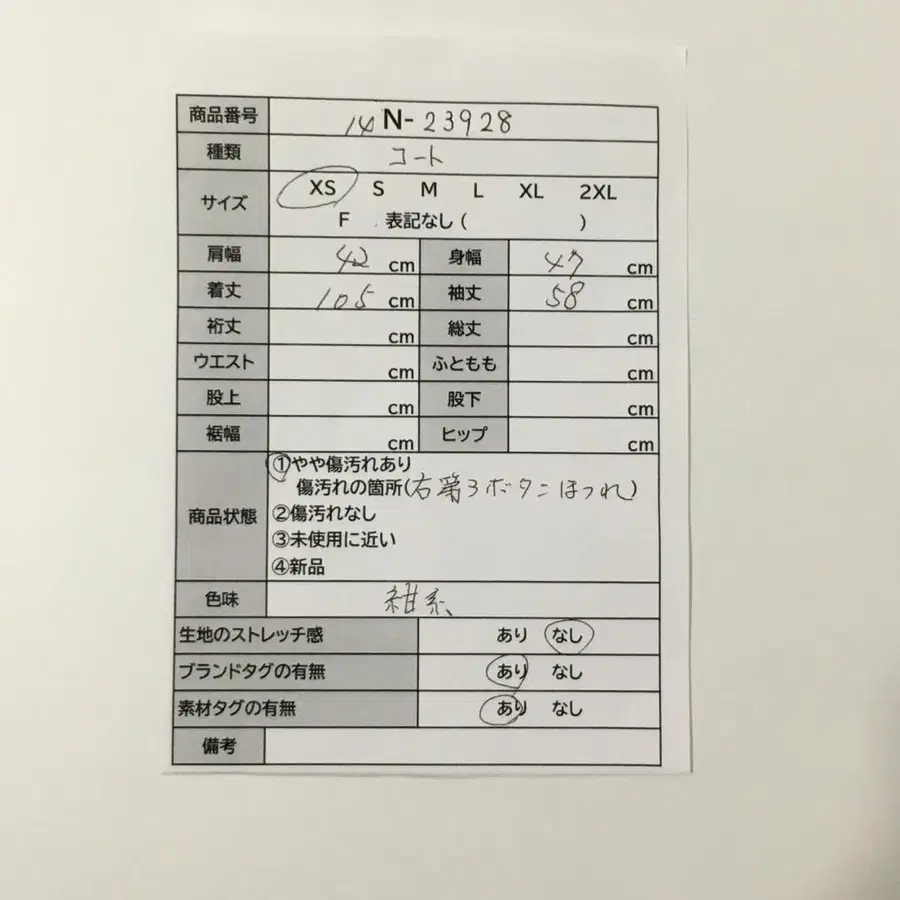 商品番号 14 N-23928
種類 コート
サイズ XS S M L XL 2XL
F 表記なし( )
肩幅 42 cm 身幅 47 cm
着丈 105 cm 袖丈 58 cm
裄丈 cm 総丈 cm
ウエスト cm ふともも cm
股上 cm 股下 cm
裾幅 cm ヒップ cm
商品状態 ①やや傷汚れあり
傷汚れの箇所(右第3ボタンほつれ)
②傷汚れなし
③未使用に近い
④新品
色味 紺系
生地のストレッチ感 あり なし
ブランドタグの有無 あり なし
素材タグの有無 あり なし
備考